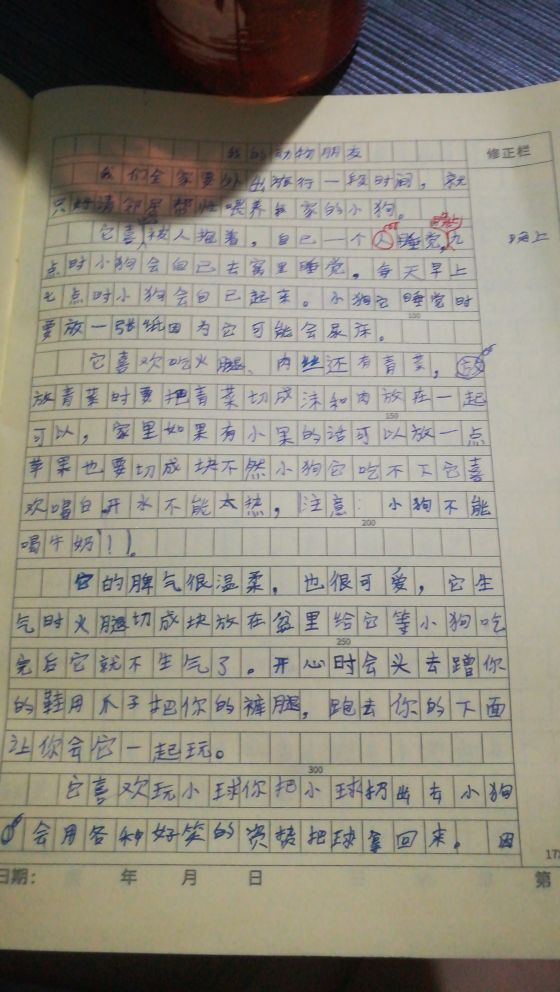 我的动物朋友
修正栏
我们全家要外出旅行一段时间，就
只好请邻居帮忙喂养我家的小狗。
它喜被人抱着，自己一个人睡觉，九
晚上
点时小狗会自己去窝里睡觉，每天早上
七点时小狗会自已起来。小狗它睡觉时
要放一张纸因为它可能会尿床。
150
它喜欢吃火腿、肉丝还有青菜，放
放青菜时要把青菜切成沫和肉放在一起
150
可以，家里如果有小果的话可以放一点
苹果也要切成块不然小狗它吃不下它喜
欢喝白开水不能太热，注意：小狗不能
200
喝牛奶！！
它的脾气很温柔，也很可爱，它生
气时火腿切成块放在盆里给它等小狗吃
250
完后它就不生气了。开心时会头去蹭你
的鞋用爪子把你的裤腿，跑去你的下面
让你会它一起玩。
300
它喜欢玩小球你把小球扔出去小狗
会用各种好笑的资势把球拿回来。因
日期： 年 月 日 第